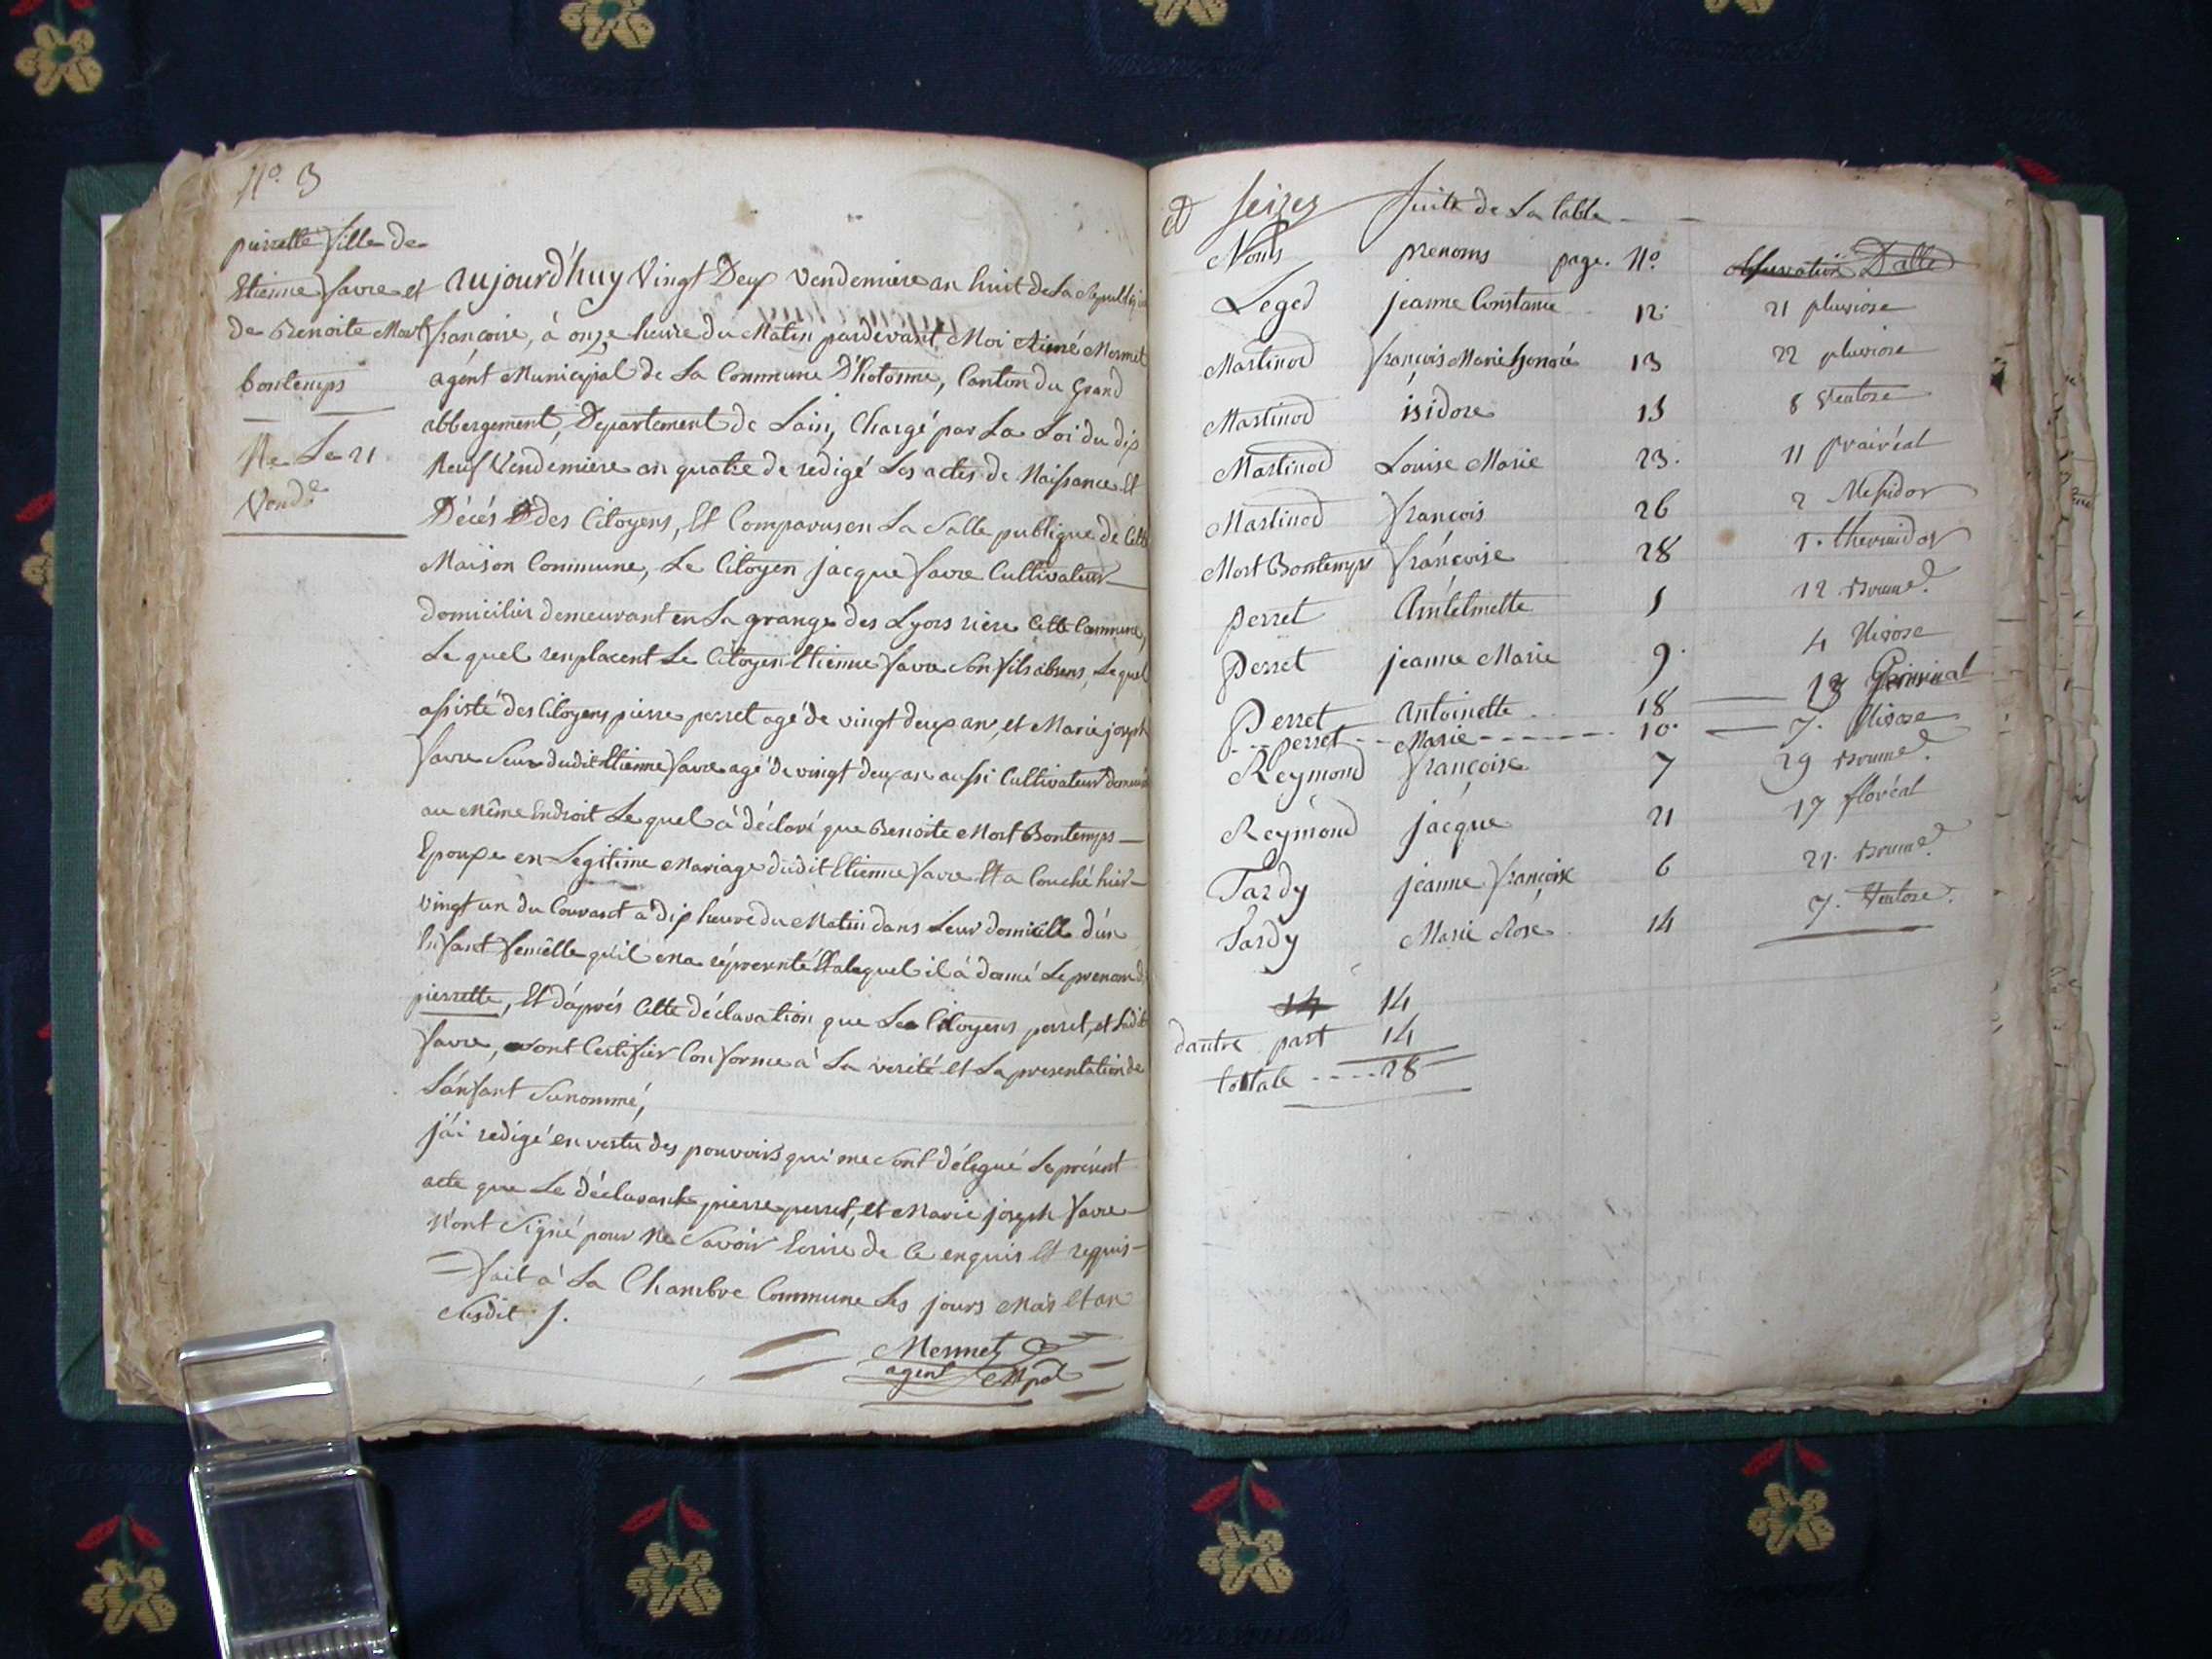 N.º 3
pierrette fille de
Etienne favre et
de Benoite Mort
bontemps
Ne Le 21
Vend.e
aujourd'huy Vingt Deux Vendemiere an huit de La Republique
françoise, à onze heure du Matin pardevant Moi Aimé Mermet
agent Municipal de La Commune D'hotonne, Canton du grand
abbergement, Departement de Lain, Chargé par La Loi du dix
Neuf Vendemiere an quatre de redigé Les actes de Naissance Et
Décés des Citoyens, Et Comparus en La Salle publique de Cette
Maison Commune, Le Citoyen jacque favre Cultivateur
domicilier demeurant en La grange des Lyors riere Cette Commune,
Le quel remplacent Le Citoyen Etienne favre Son fils absens, Le quel
assisté des Citoyens pierre perret agé de vingt deux an, et Marie joseph
favre Seur dudit Etienne favre agé de vingt deux an aussi Cultivateur
au Même Endroit Le quel à déclaré que Benoite Mort Bontemps
Epouse en Legitime Mariage dudit Etienne favre Et a Couché hier
vingt un du Courant à dix heure du Matin dans Leur domicille d'un
Enfant femêlle qu'il ma représenté Et alequel il à donné Le prenom de
pierrette, Et d'après Cette déclaration que Les Citoyens perret, et Ladite
favre, ont Certifier Conforme à La verité Et La presentation de
L'enfant Sunommé,
j'ai redigé en vertu des pouvoirs qui me Sont délegué Le présent
acte que Le déclarant pierre perret, Et Marie joseph favre
N'ont Signé pour Ne Savoir Ecrire de Ce enquis Et requis
fait à La Chambre Commune Les jours Mois Et an
Susdit.
Mermet
agent Mpal
Seizes Suite de La table
Noms prenoms page. N.º Observation Datte
Leged jeanne Constance 12 21 pluviose
Martinod françois Marie honoré 13 22 pluviose
Martinod isidore 15 8 Ventose
Martinod Louise Marie 23 11 prairéal
Martinod françois 26 2 Messidor
Mort Bontemps françoise 28 1. thermidor
Perret Antelmette 5 12 Brum.e
Perret jeanne Marie 9 4 Nivose
Perret Antoinette 18 13 Germinal
perret Marie 10 7. Nivose
Reymond françoise 7 29 Brum.e
Reymond jacque 21 17 floréal
Tardy jeanne françoise 6 21. Brum.e
Tardy Marie Rose 14 7. Ventose
14 14
dautre part 14
tottale 28